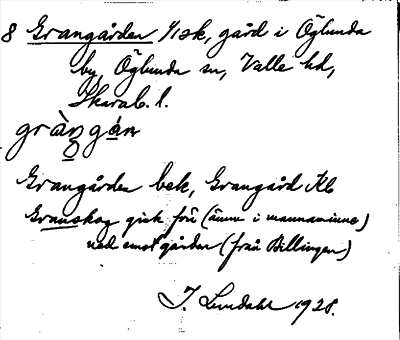 8 Grangården 1/1 sk, gård i Öglunda
by, Öglunda sn, Valle hd,
Skarab. l.
gràngán
Grangården bek, Grangård Kb
Granskog gick frå (ännu i mannaminne)
ned emot gården (från Billingen)
J. Lindahl 1928.